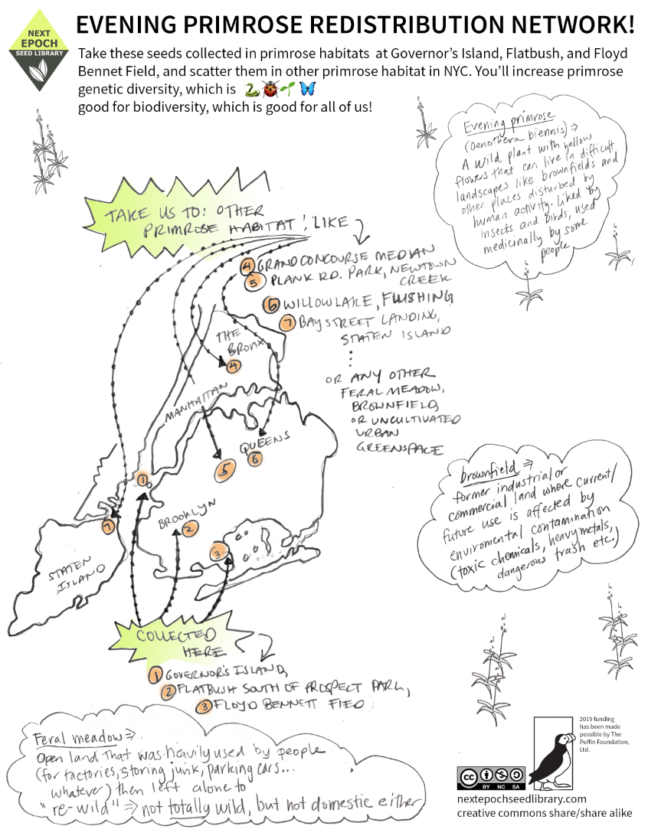 NEXT
EPOCH
SEED LIBRARY
EVENING PRIMROSE REDISTRIBUTION NETWORK!
Take these seeds collected in primrose habitats at Governor's Island, Flatbush, and Floyd
Bennet Field, and scatter them in other primrose habitat in NYC. You'll increase primrose
genetic diversity, which is
good for biodiversity, which is good for all of us!
Evening primrose
(Oenothera biennis) ⇒
A wild plant with yellow
flowers that can live in difficult
landscapes like brownfields and
other places disturbed by
human activity. Liked by
insects and birds, used
medicinally by some
people
TAKE US TO: OTHER
PRIMROSE HABITAT! LIKE
4 GRAND CONCOURSE MEDIAN
5 PLANK RD. PARK, NEWTOWN
CREEK
6 WILLOW LAKE, FLUSHING
7 BAY STREET LANDING,
STATEN ISLAND
OR ANY OTHER
FERAL MEADOW,
BROWNFIELD,
OR UNCULTIVATED
URBAN
GREENSPACE
THE
BRONX
4
MANHATTAN
QUEENS
5
6
1
BROOKLYN
2
7
3
STATEN
ISLAND
brownfield ⇒
former industrial or
commercial land where current/
future use is affected by
enviromental contamination
(toxic chemicals, heavy metals,
dangerous trash etc.)
COLLECTED
HERE
1 GOVERNOR'S ISLAND,
2 FLATBUSH SOUTH OF PROSPECT PARK,
3 FLOYD BENNETT FIED
Feral meadow ⇒
Open land that was heavily used by people
(for factories, storing junk, parking cars...
whatever) then left alone to
"re-wild" ⇒ not totally wild, but not domestic either
2019 funding
has been made
possible by The
Puffin Foundation,
Ltd.
CC BY NC SA
nextepochseedlibrary.com
creative commons share/share alike